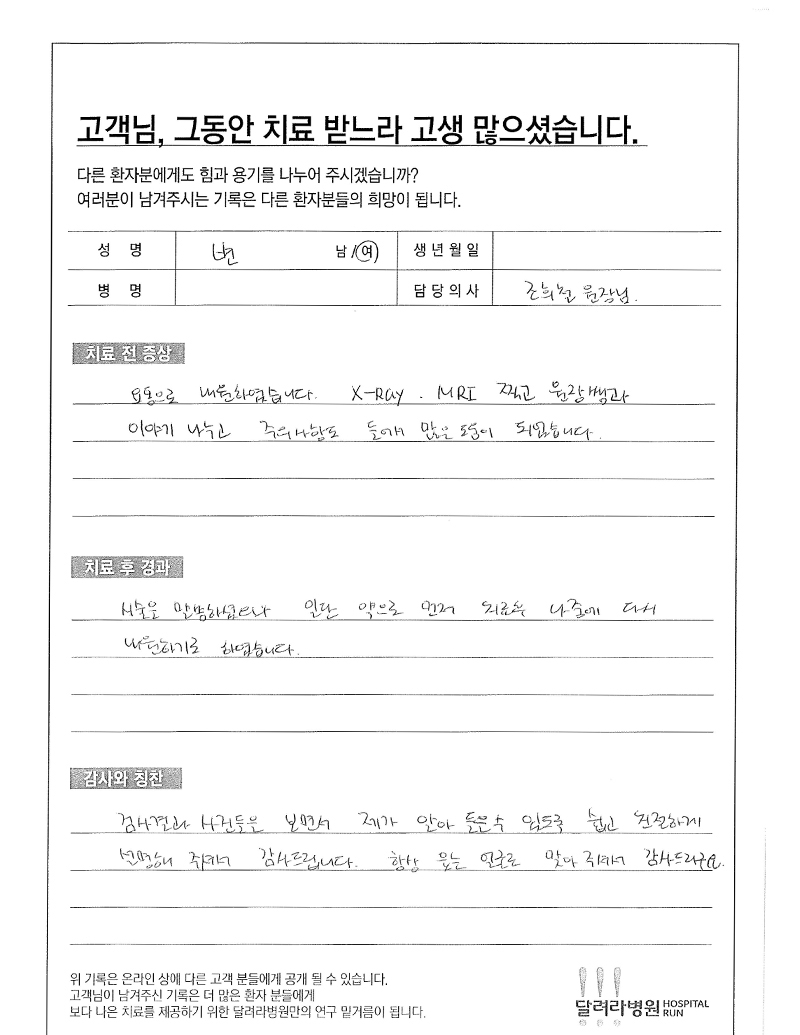 고객님, 그동안 치료 받느라 고생 많으셨습니다.
다른 환자분에게도 힘과 용기를 나누어 주시겠습니까?
여러분이 남겨주시는 기록은 다른 환자분들의 희망이 됩니다.
성 명 변 남/여 생년월일
병 명 담당의사 조희철 원장님.
치료 전 증상
요통으로 내원하였습니다. X-Ray. MRI 찍고 원장쌤과
이야기 나누고 주의사항도 들어서 많은 도움이 되었습니다.
치료 후 경과
시술을 말씀하셨으나 일단 약으로 먼저 치료후 나중에 다시
내원하기로 하였습니다.
감사와 칭찬
검사결과 사진들을 보면서 제가 알아 들을수 있도록 쉽고 친절하게
설명해 주셔서 감사드립니다. 항상 웃는 얼굴로 맞아 주셔서 감사드려요.
위 기록은 온라인 상에 다른 고객 분들에게 공개 될 수 있습니다.
고객님이 남겨주신 기록은 더 많은 환자 분들에게
보다 나은 치료를 제공하기 위한 달려라병원만의 연구 밑거름이 됩니다.
달려라병원 HOSPITAL RUN